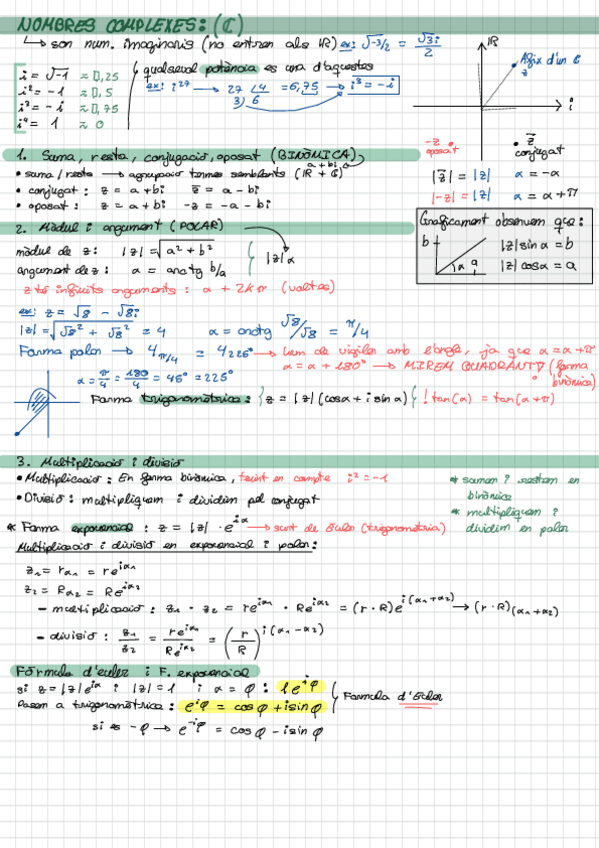 NOMBRES COMPLEXES: (ℂ)
↳ son num. imaginaris (no entren als ℝ) ex: √-3/2 = √3i/2
i = √-1 ≈ 0,25
i² = -1 ≈ 0,5
i³ = -i ≈ 0,75
i⁴ = 1 ≈ 0
qualsevol potència es una d'aquestes
ex: i²⁷ → 27 ∟4 = 6,75 → i³ = -i
3) 6
ℝ
Afix d'un ℂ
z
i
-z oposat
z̄ conjugat
|z̄| = |z| α = -α
|-z| = |z| α = α + π
1. Suma, resta, conjugació, oposat (BINÒMICA)
a + bi
• suma / resta → agrupació termes semblants (ℝ + ℂ)
• conjugat: z = a + bi z̄ = a - bi
• oposat: z = a + bi -z = -a - bi
Gràficament observem que:
b
α a
|z| sin α = b
|z| cos α = a
2. Mòdul i argument (POLAR)
mòdul de z: |z| = √a² + b²
argument de z: α = arctg b/a
|z|α
z té infinits arguments: α + 2kπ (voltes)
ex: z = √8 - √8i
|z| = √√8² + √8² = 4 α = arctg √8/√8 = π/4
Forma polar → 4π/4 = 4225° → hem de vigilar amb l'angle, ja que α = α + π
α = α + 180° → MIREM QUADRANT! (forma binòmica)
α = π/4 = 180/4 = 45° = 225°
Forma trigonomètrica: { z = |z| (cos α + i sin α) { ! tan(α) = tan(α + π)
3. Multiplicació i divisió
• Multiplicació: En forma binòmica, tenint en compte i² = -1
• Divisió: multipliquem i dividim pel conjugat
* sumem i restem en binòmica
* multipliquem i dividim en polar
* Forma exponencial: z = |z| · e^iα → surt de Euler (trigonometria)
Multiplicació i divisió en exponencial i polar:
z₁ = rα₁ = re^iα₁
z₂ = Rα₂ = Re^iα₂
- multiplicació: z₁ · z₂ = re^iα₁ · Re^iα₂ = (r · R)e^i(α₁ + α₂) → (r · R)(α₁ + α₂)
- divisió: z₁/z₂ = re^iα₁/Re^iα₂ = (r/R)^i(α₁ - α₂)
Fórmula d'euler i F. exponencial
si z = |z|e^iα i |z| = 1 i α = φ: 1e^iφ
Passem a trigonomètrica: e^iφ = cos φ + i sin φ
Formula d'Euler
si es -φ → e^-iφ = cos φ - i sin φ